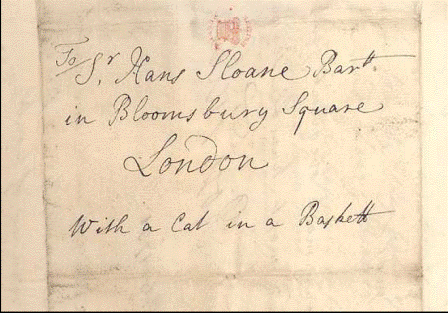 To Sr. Hans Sloane Bartt.
in Bloomsbury Square
London
With a Cat in a Baskett